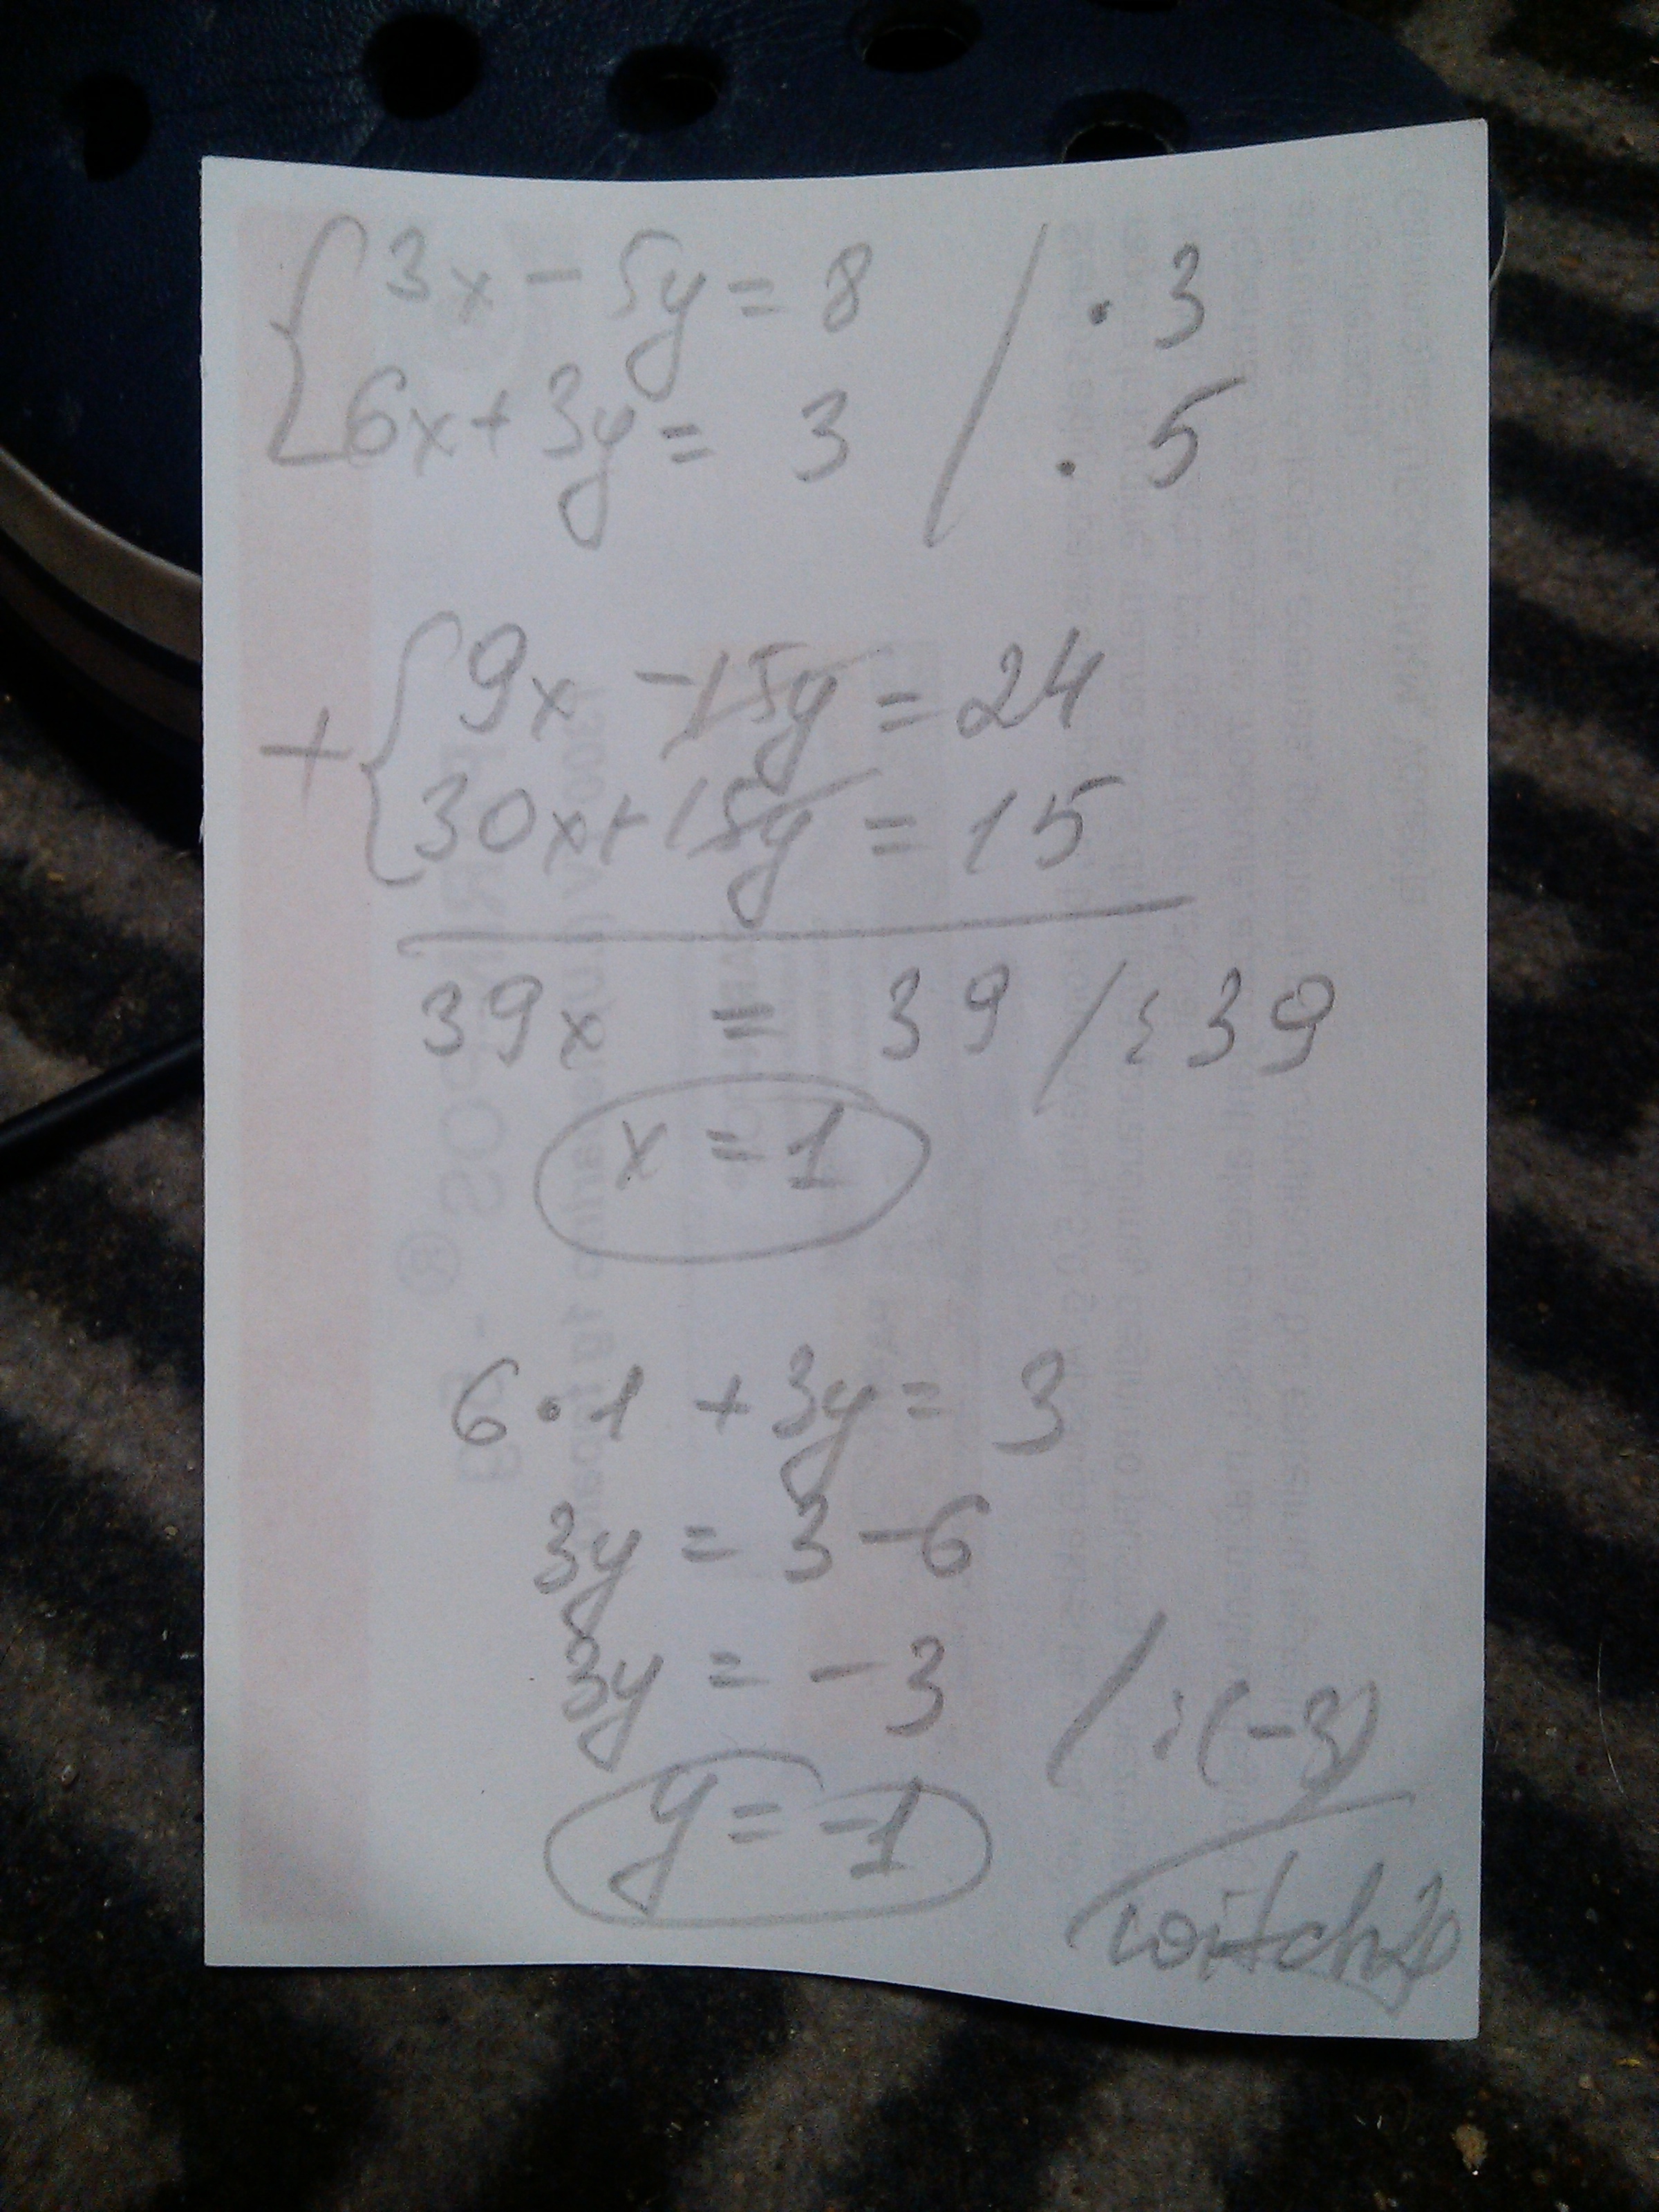 { 3x - 5y = 8 / · 3
6x + 3y = 3 / · 5
+ { 9x - 15y = 24
30x + 15y = 15
39x = 39 / : 39
x = 1
6 · 1 + 3y = 3
3y = 3 - 6
3y = -3 / : (-3)
y = -1